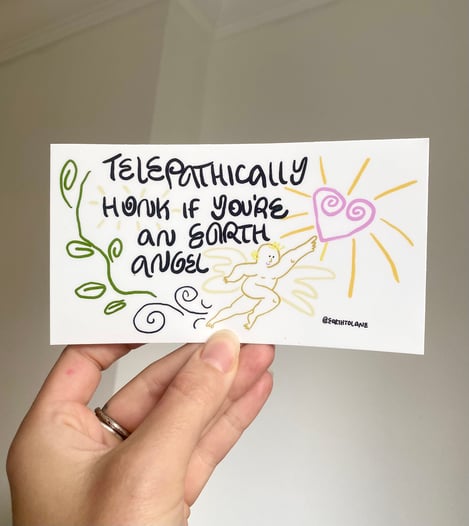 TELEPATHICALLY
HONK IF YOU'RE
AN EARTH
ANGEL
@EARTHTOLANE